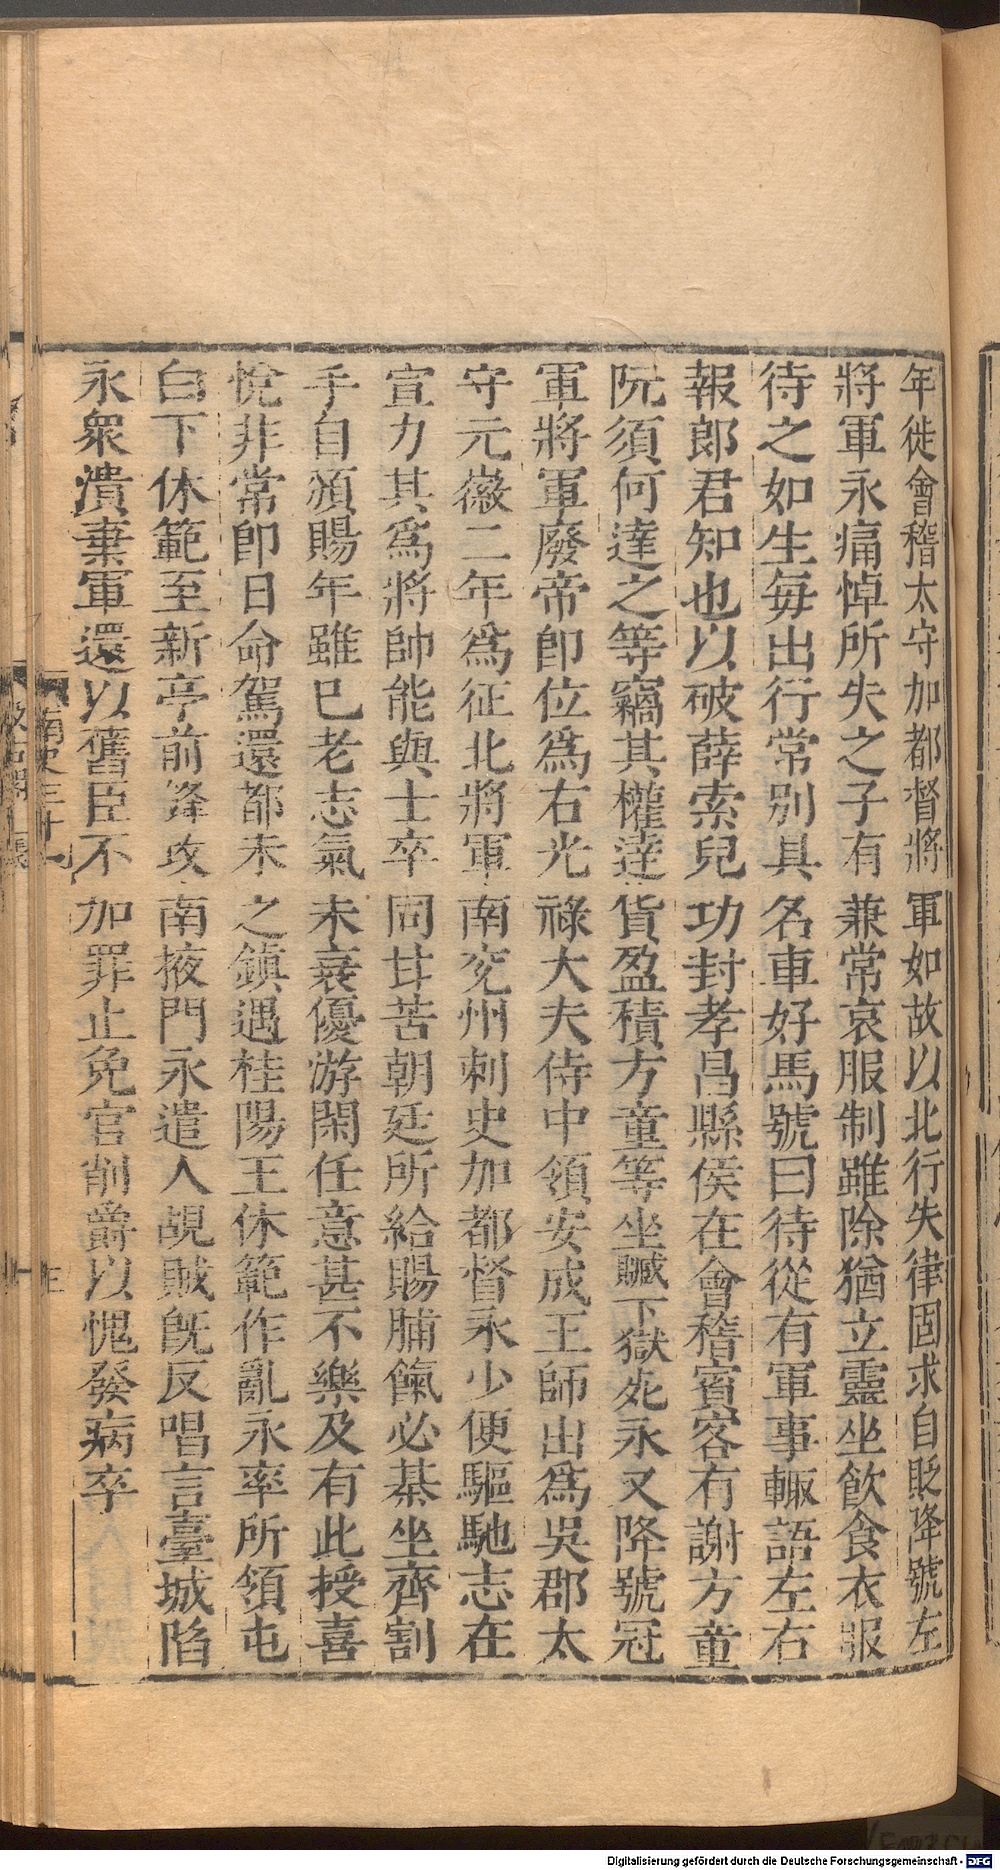 年徙會稽太守加都督將軍如故以北行失律固求自貶降號左
將軍永痛悼所失之子有兼常哀服制雖除猶立靈坐飲食衣服
待之如生每出行常別具名車好馬號曰待從有軍事輙語左右
報郎君知也以破薛索兒功封孝昌縣侯在會稽賓客有謝方童
阮須何達之等竊其權達貨盈積方童等坐贓下獄死永又降號冠
軍將軍廢帝卽位爲右光祿大夫侍中領安成王師出爲吳郡太
守元徽二年爲征北將軍南兖州刺史加都督永少便驅馳志在
宣力其爲將帥能與士卒同甘苦朝廷所給賜脯餼必棊坐齊割
手自頒賜年雖已老志氣未衰優游閑任意甚不樂及有此授喜
悅非常卽日命駕還都未之鎮遇桂陽王休範作亂永率所領屯
白下休範至新亭前鋒攻南掖門永遣人覘賊旣反唱言臺城陷
永衆潰棄軍還以舊臣不加罪止免官削爵以愧發病卒
Digitalisierung gefördert durch die Deutsche Forschungsgemeinschaft - DFG